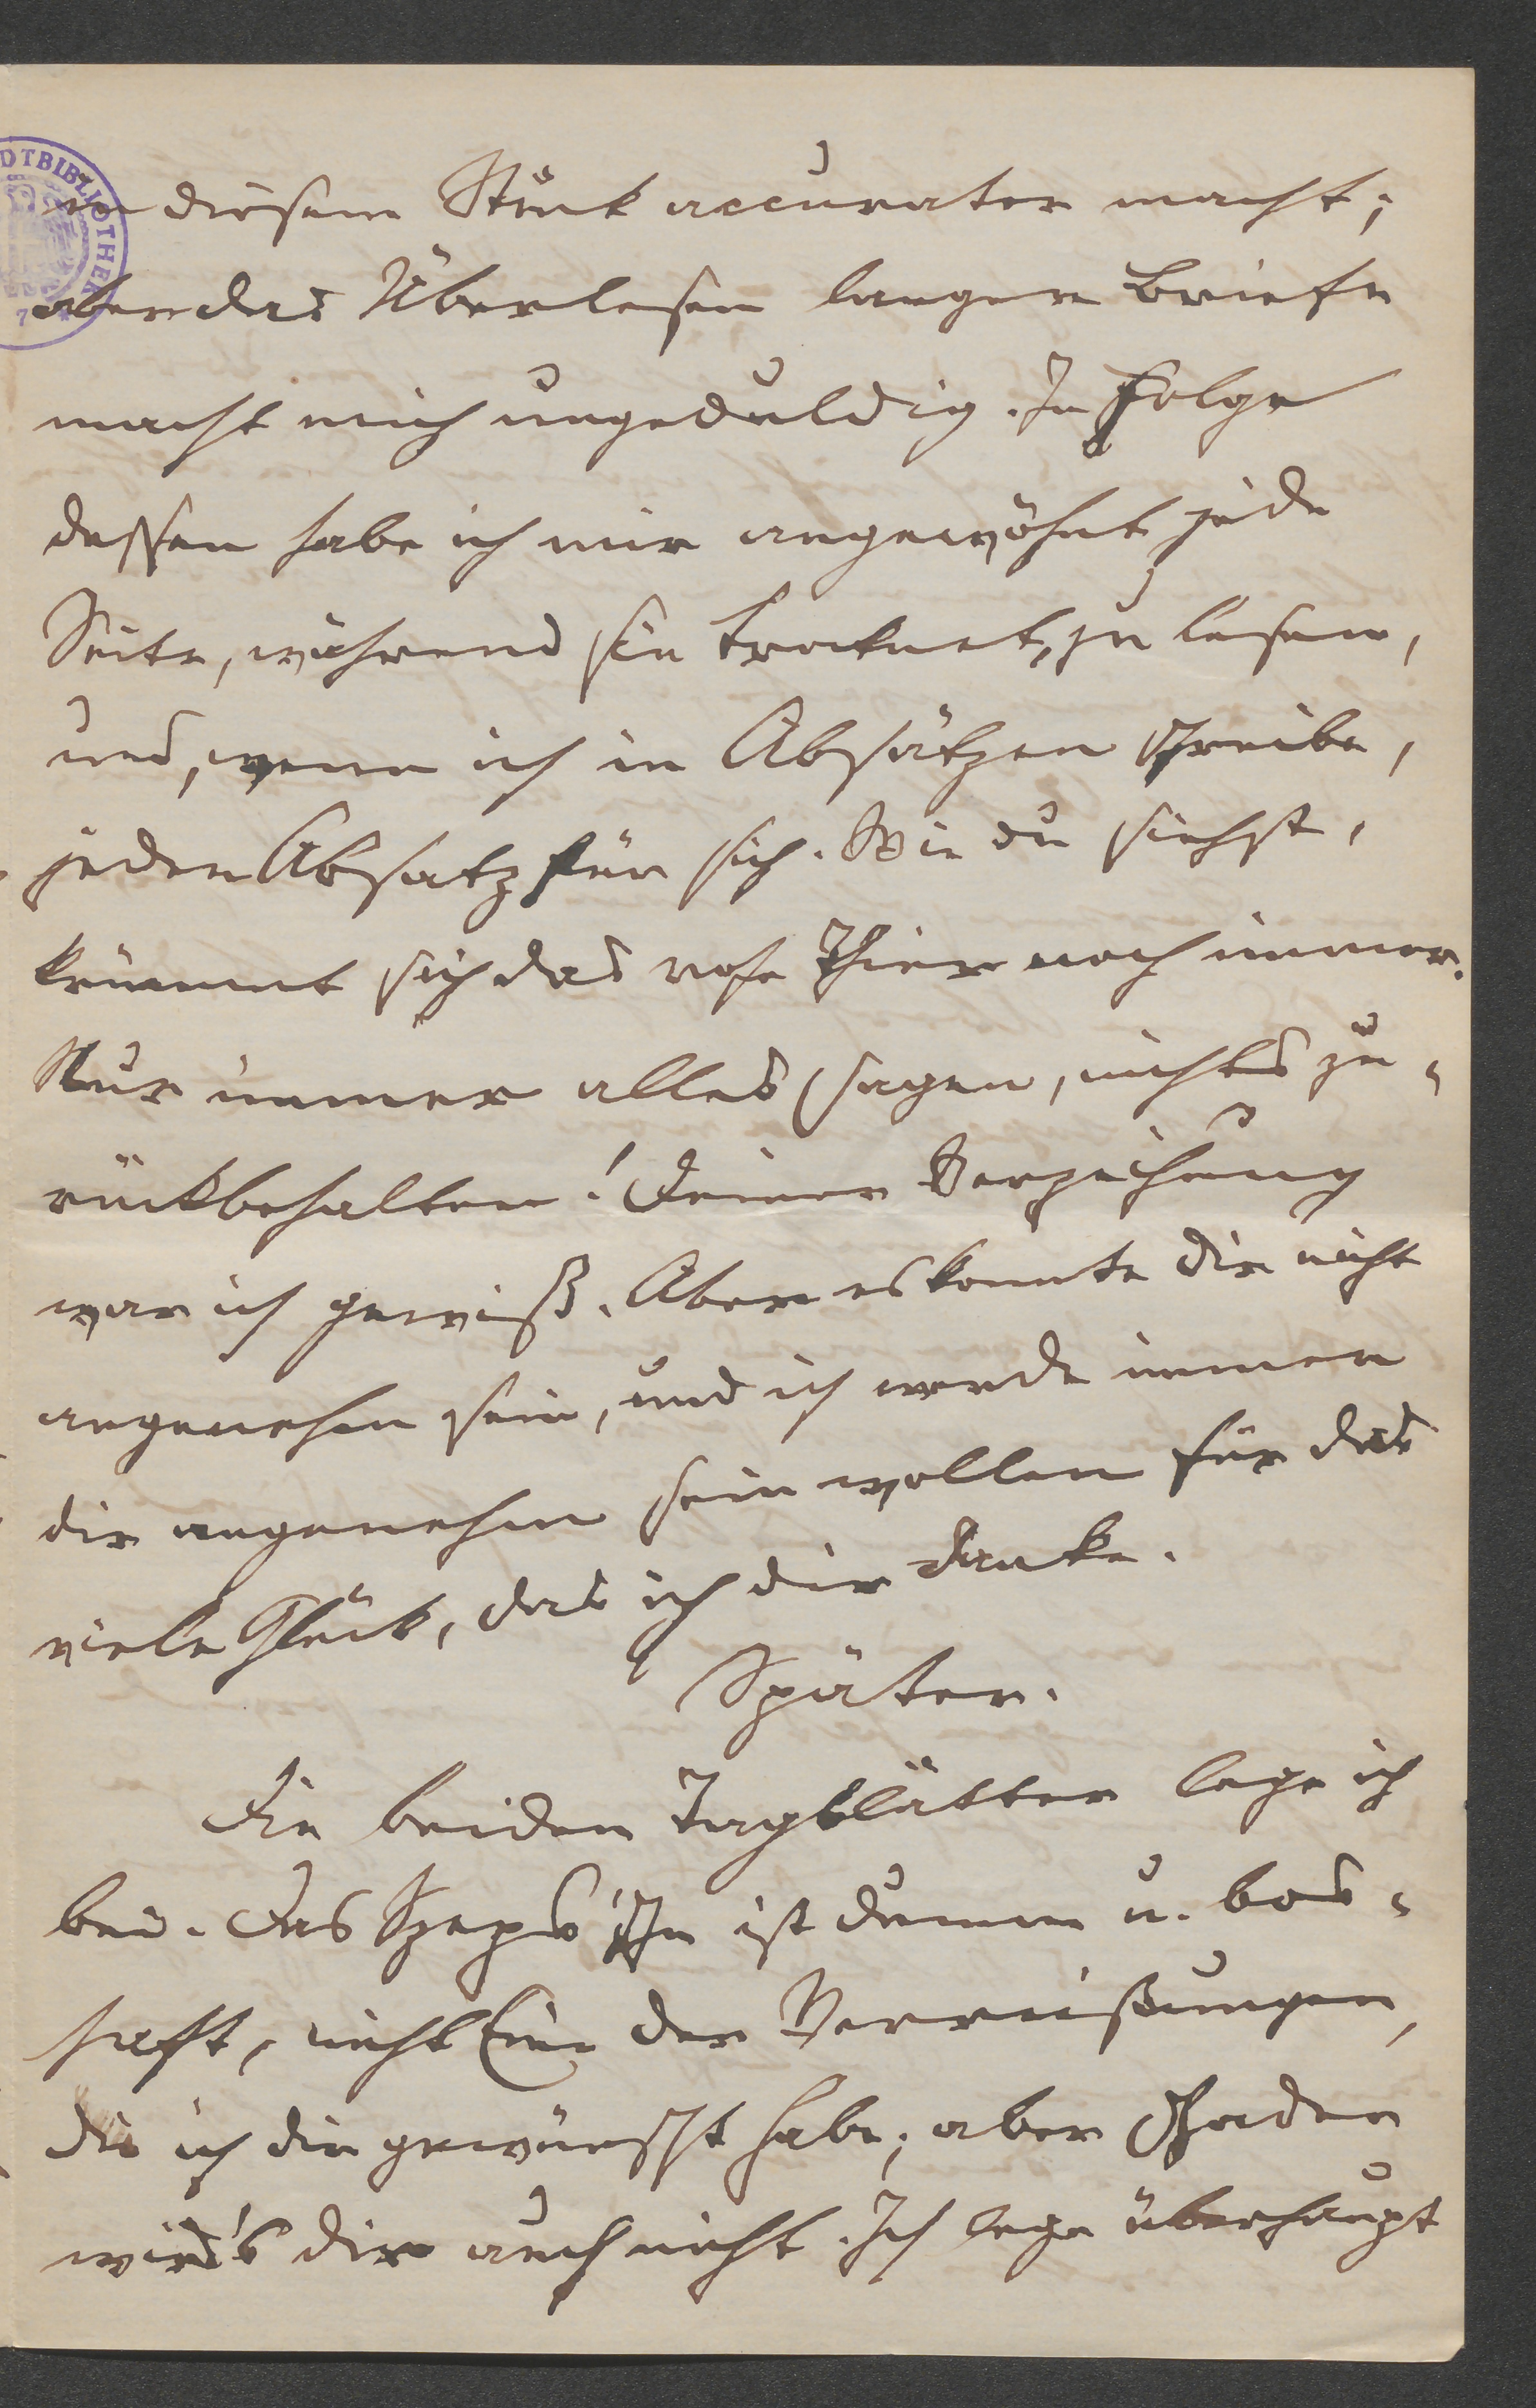 in diesem Stück accurater macht;
aber das Überlesen langer Briefe
macht mich ungeduldig. In Folge
dessen habe ich mir angewöhnt, jede
Seite, während sie trocknet, zu lesen,
und, wenn ich in Absätzen schreibe,
jeden Absatz für sich. Wie du siehst,
krümmt sich das rohe Thier noch immer.
Nur immer alles sagen, nichts zu-
rückbehalten! Deiner Verzeihung
war ich gewiß. Aber es konnte dir nicht
angenehm sein, und ich werde immer
dir angenehm sein wollen für das
viele Glück, das ich dir danke.
Später.
Die beiden Tagblätter lege ich
bei. Das Szeps'sche ist dumm u. bos-
haft, nicht Eine der Verreißungen,
die ich dir gewünscht habe; aber schaden
wird's dir auch nicht. Ich lege überhaupt
DTBIBLIOTHEK